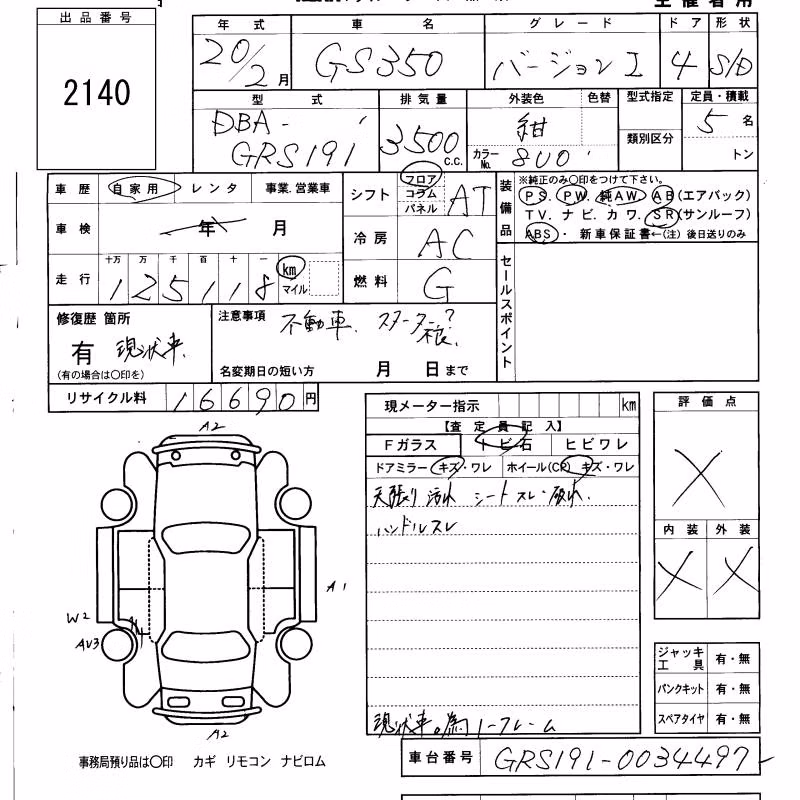 主催者用
出品番号
2140
年式 車名 グレード ドア 形状
20/2月 GS350 バージョンI 4 S/D
型式 排気量 外装色 色替 型式指定 定員・積載
DBA- 3500 c.c. 紺 類別区分 5名
GRS191 カラーNo. 8U0 トン
車歴 自家用 レンタ 事業.営業車
車検 年 月
走行 十万 万 千 百 十 一
125118 km マイル
シフト フロア コラム パネル AT
冷房 AC
燃料 G
装備品
※純正のみ〇印をつけて下さい。
PS. PW. 純AW. AB(エアバック)
TV. ナビ. カワ. SR(サンルーフ)
ABS・ 新車保証書←(注)後日送りのみ
セールスポイント
修復歴 箇所
有 現状車.
(有の場合は〇印を)
注意事項 不動車、スターター?
不良.
名変期日の短い方 月 日まで
リサイクル料 16690円
現メーター指示 km
【査定員記入】
Fガラス トビ石 ヒビワレ
ドアミラー(キズ・ワレ ホイール(CP) キズ・ワレ
天張り汚れ シートスレ・破れ.
ハンドルスレ
現状車の為ノークレーム
評価点
X
内装 外装
X X
A2
A1
W2
AV3
A2
ジャッキ工具 有・無
パンクキット 有・無
スペアタイヤ 有・無
事務局預り品は〇印 カギ リモコン ナビロム
車台番号 GRS191-0034497